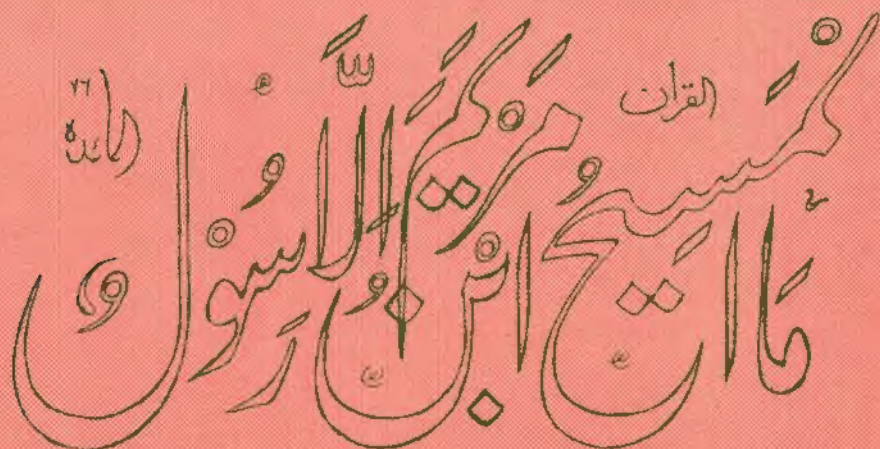 القران
مَا الْمَسِيحُ ابْنُ مَرْيَمَ اِلَّا رَسُوْلٌ
المائدة ٧٦